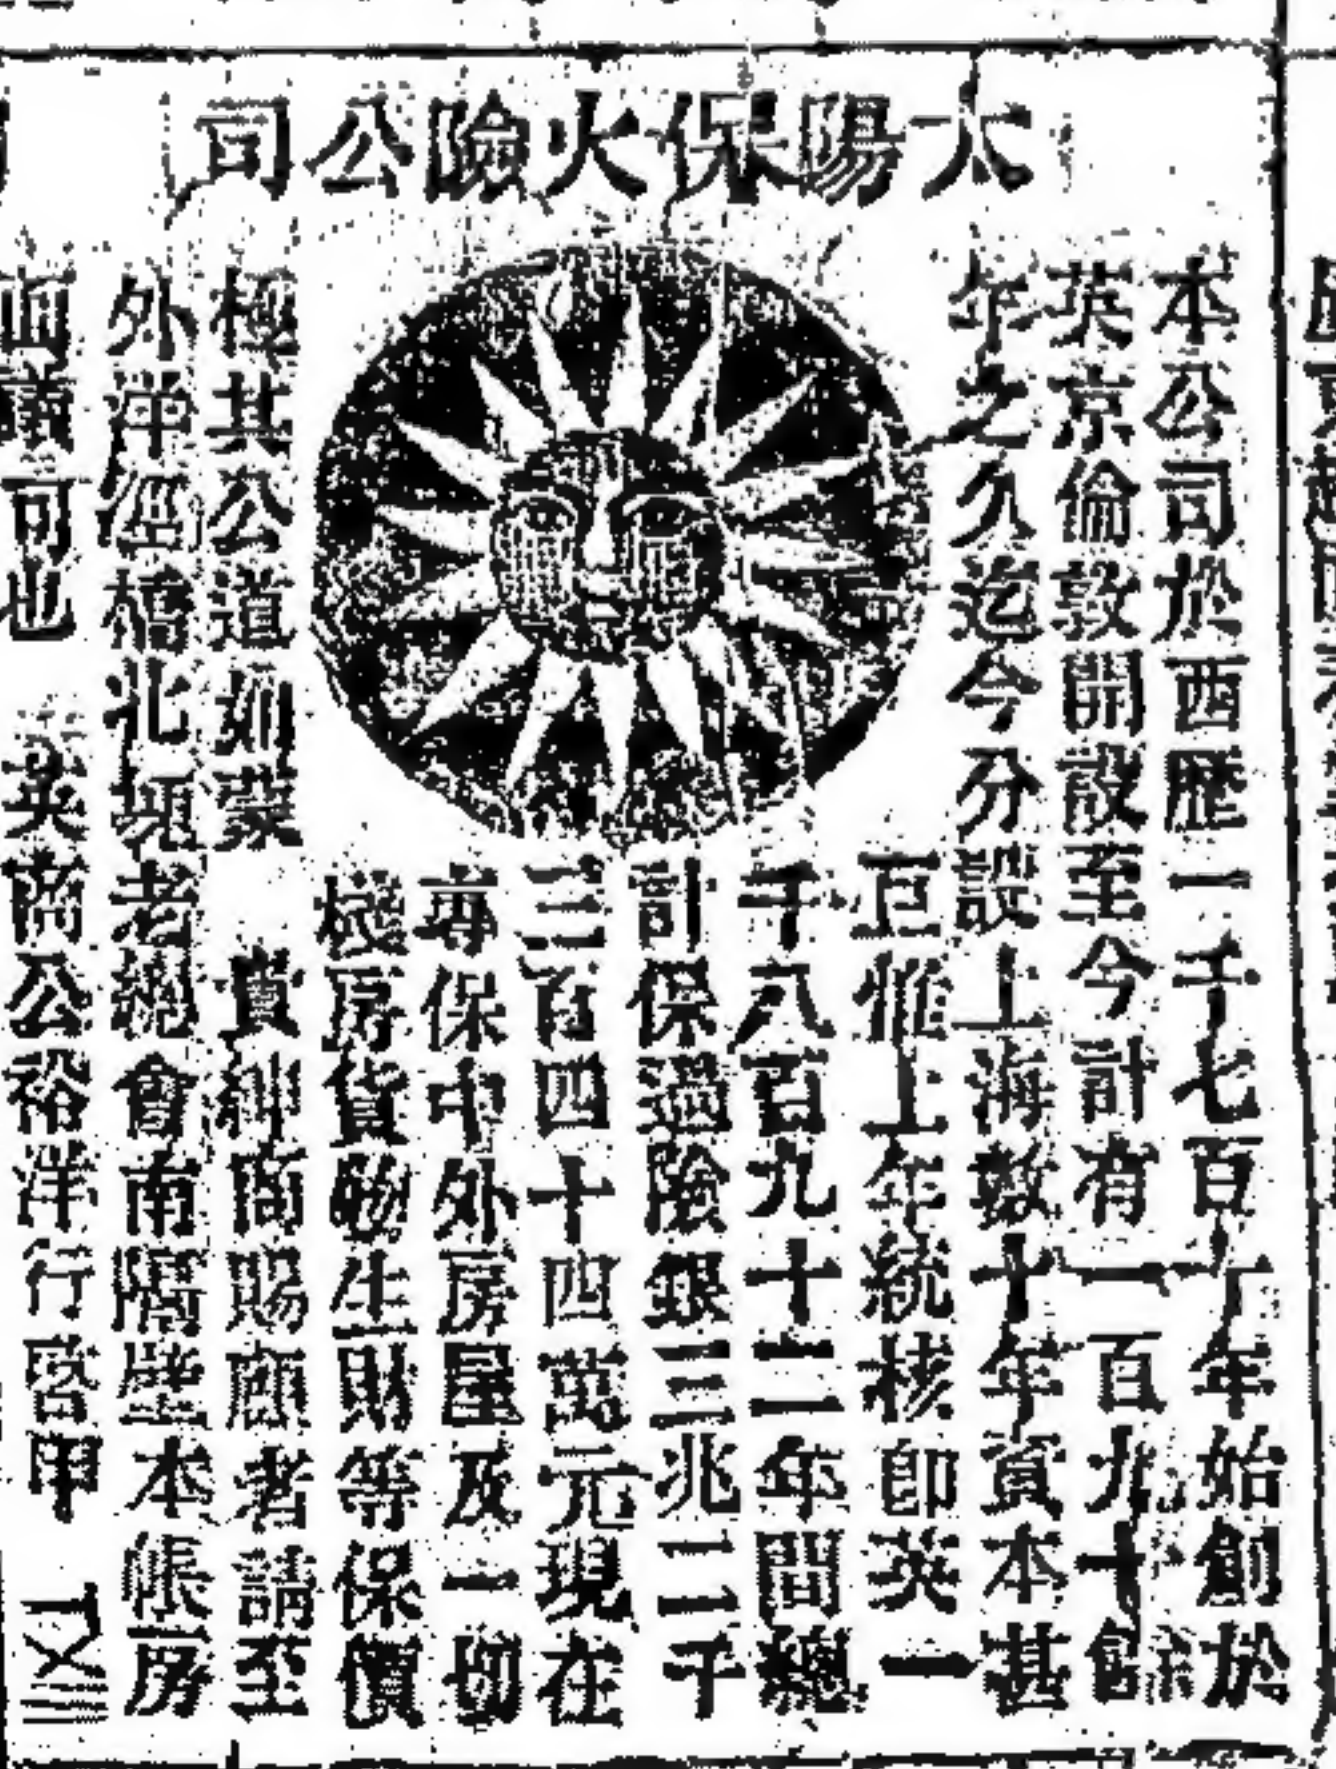 太陽保火險公司
本公司於西歷一千七百十年始創於
英京倫敦開設至今計有一百九十餘
年之久迄今分設上海數十年資本甚
巨惟上年統核卽英一
千八百九十二年間總
計保過險銀三兆二千
三百四十四萬元現在
專保中外房屋及一切
棧房貨物生財等保價
極其公道如蒙 貴紳商賜顧者請至
外洋涇橋北堍老總會南隔壁本帳房
面議可也 英商公裕洋行啓甲